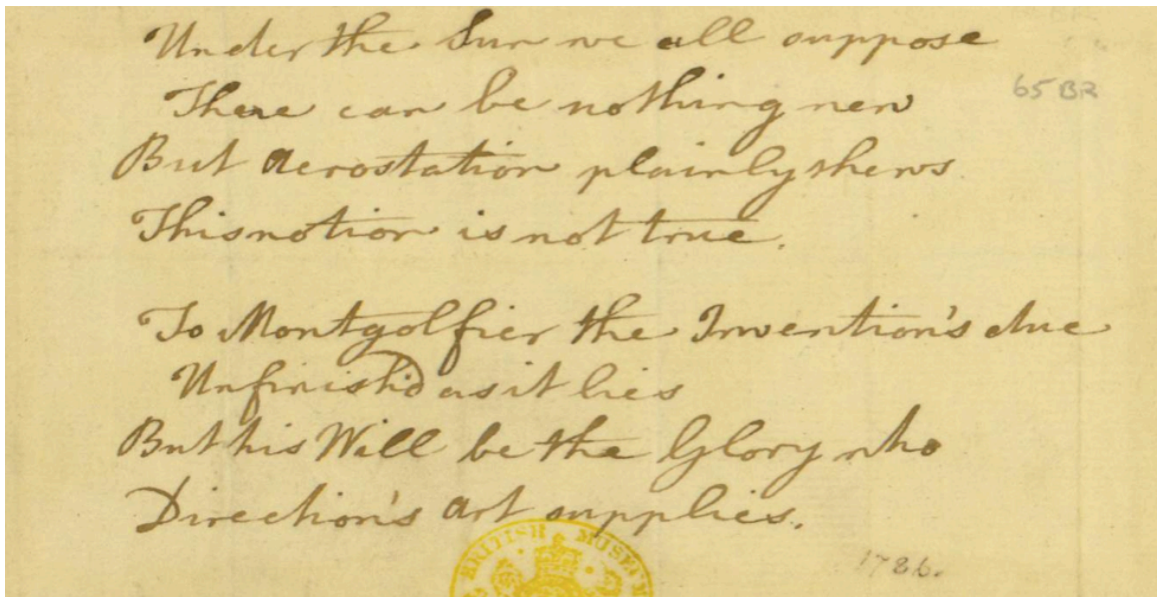 Under the Sun we all suppose
There can be nothing new
65 BR
But Aerostation plainly shews
This notion is not true.
To Montgolfier the Invention's due
Unfinish'd as it lies
But his Will be the Glory who
Direction's Art supplies.
BRITISH MUSEUM
1786.